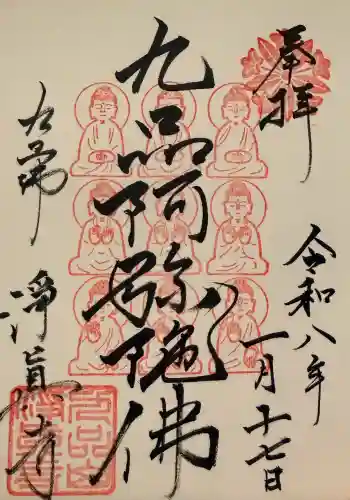 奉拝
令和八年
一月十七日
九品阿弥陀佛
淨眞寺
九品山